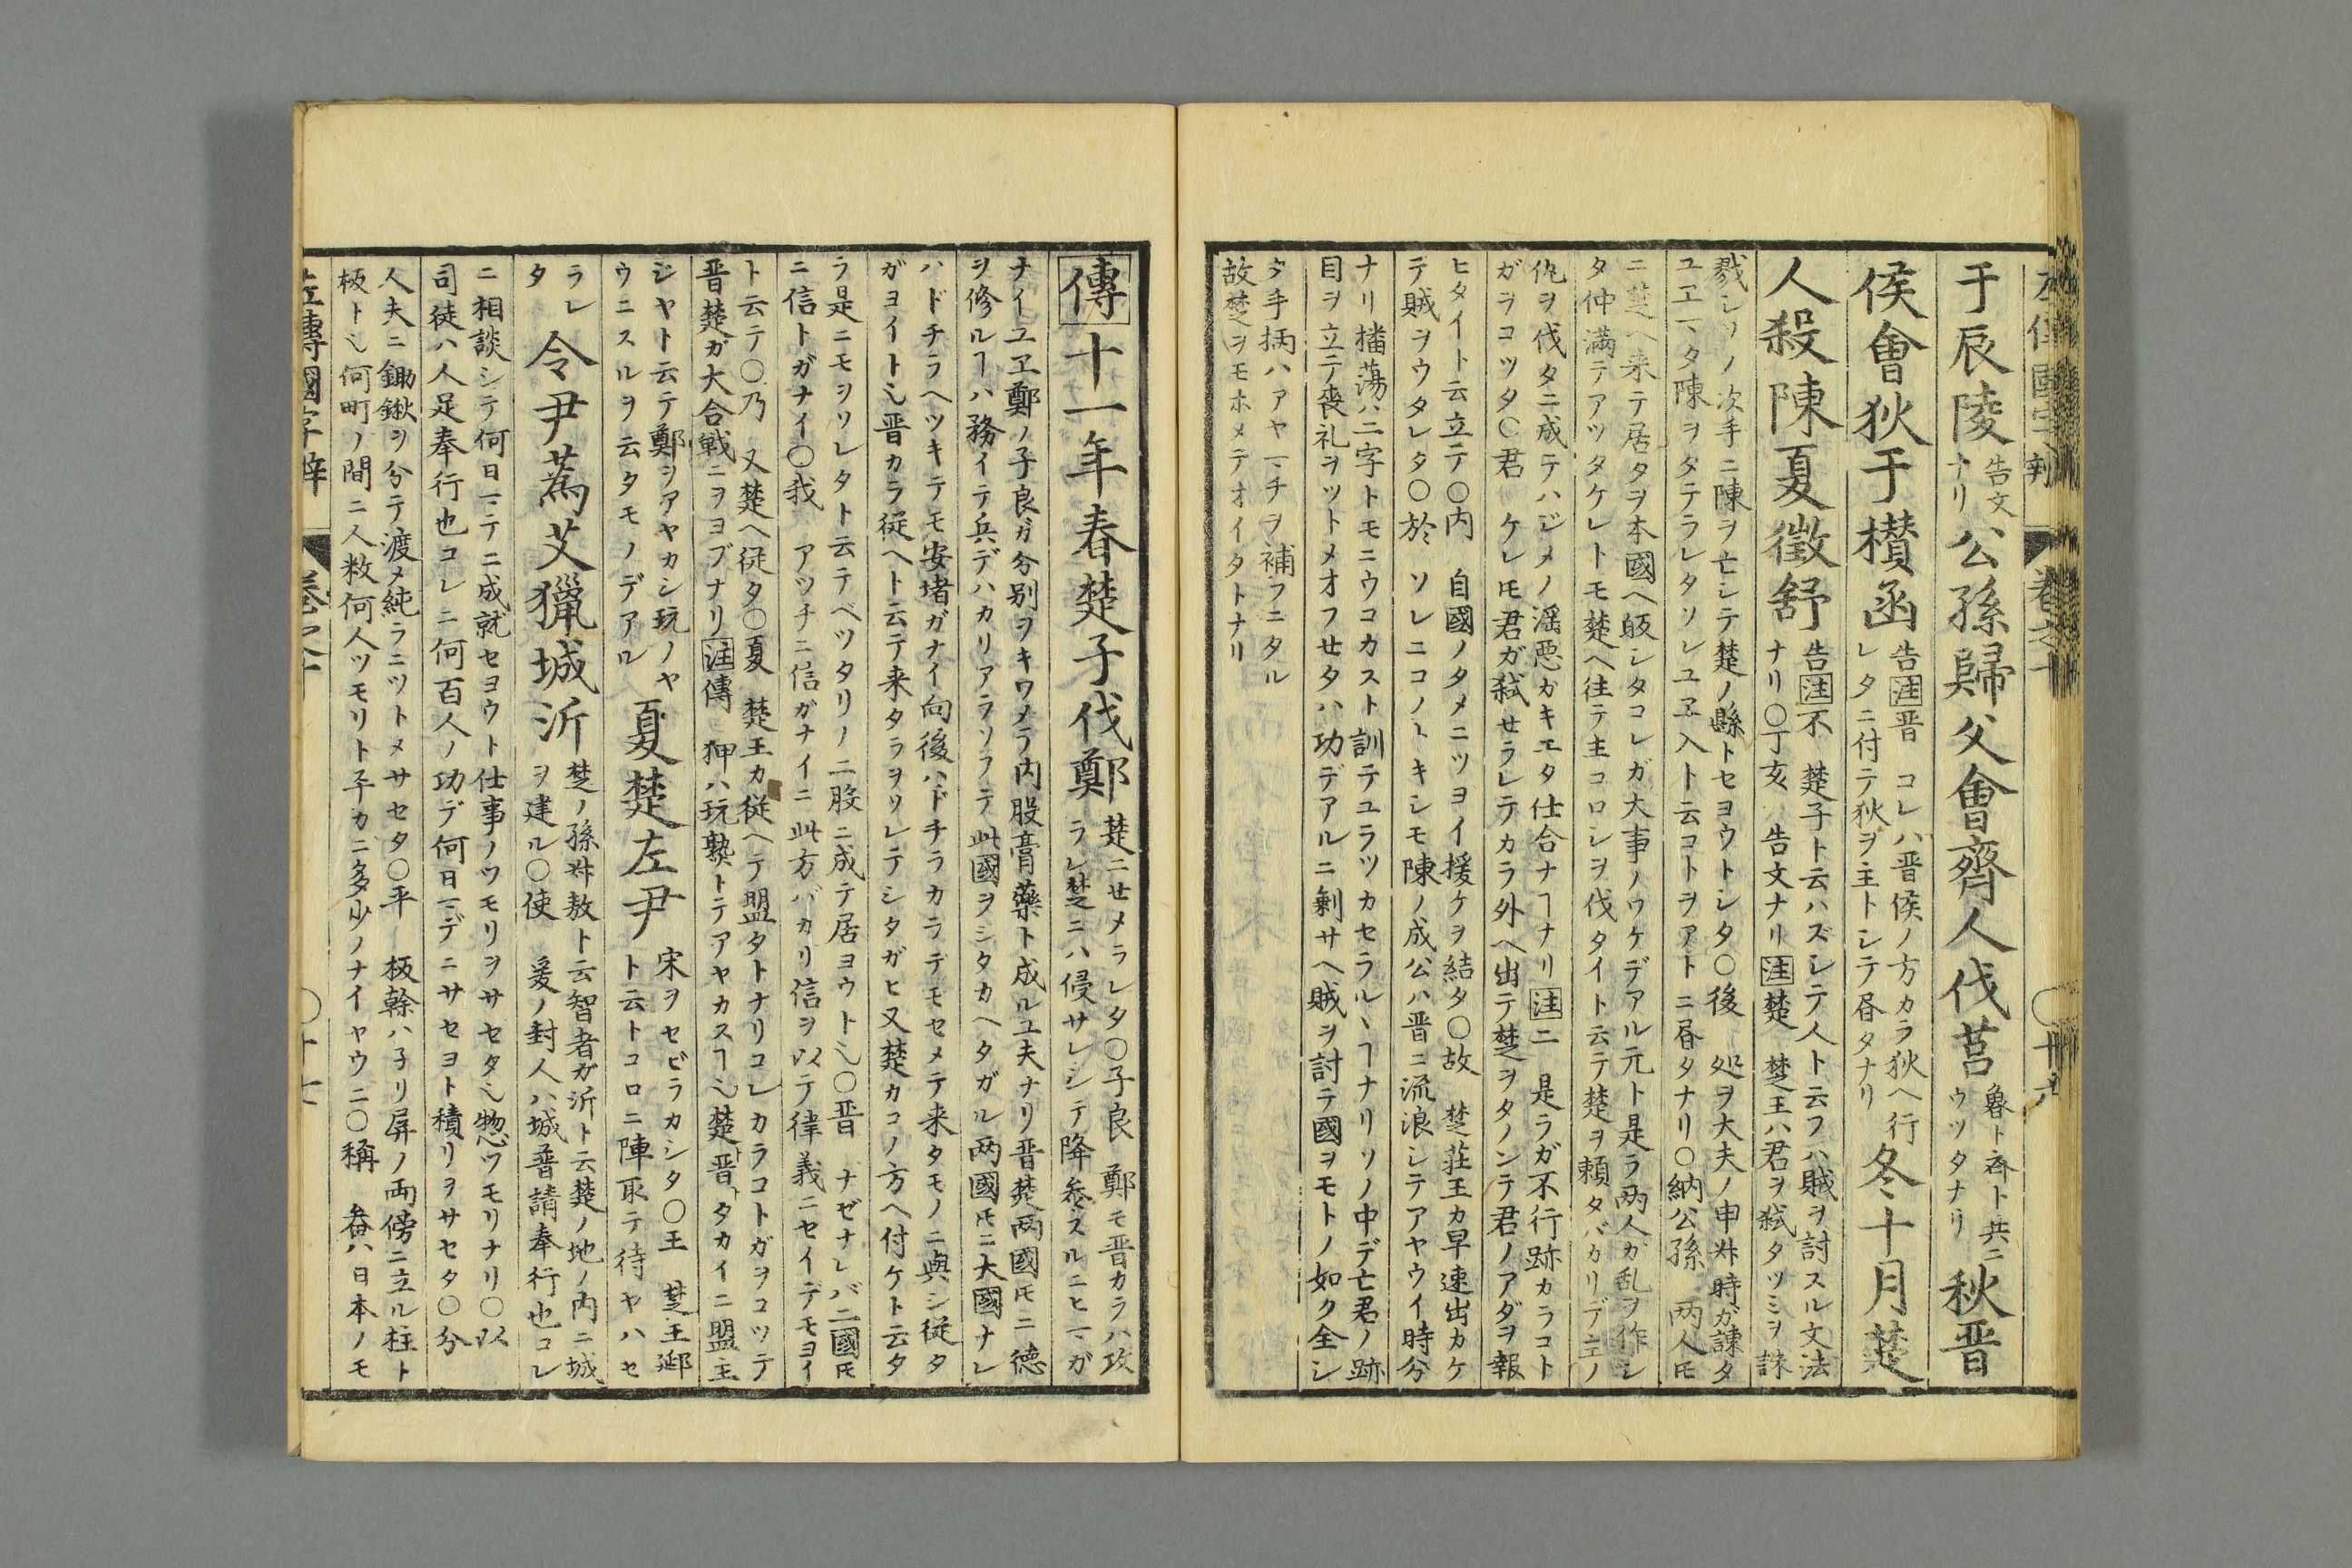 左傳國字辨 卷之十
于辰陵告文ナリ公孫歸父會齊人伐莒魯ト斉ト共ニウツタナリ秋晋
侯會狄于欑函告注晋 コレハ晋侯ノ方カラ狄ヘ行レタニ付テ狄ヲ主トシテ昏タナリ冬十月楚
人殺陳夏徵舒告注不 楚子ト云ハズシテ人ト云フハ賊ヲ討スル文法ナリ○丁亥 告文ナリ注楚 楚王ハ君ヲ弑タツミヲ誅
戮シソノ次手ニ陳ヲ亡シテ楚ノ縣トセヨウトシタ○後 処ヲ大夫ノ申叔時ガ諌タ
ユヱマタ陳ヲタテラレタソレユヱ入ト云コトヲアトニ昏タナリ○納公孫 両人𪜈
ニ楚ヘ来テ居タヲ本國ヘ皈シタコレガ大事ノウケデアル元ト是ラ両人ガ乱ヲ作シ
タ仲満テアツタケレトモ楚ヘ往テ主コロシヲ伐タイト云テ楚ヲ頼タバカリデ主ノ
仇ヲ伐タニ成テハジメノ滛悪ガキエタ仕合ナヿナリ注二 是ラガ不行跡カラコト
ガヲコツタ○君 ケレ𪜈君ガ弑セラレテカラ外ヘ出テ楚ヲタノンテ君ノアダヲ報
ヒタイト云立テ○内 自國ノタメニツヨイ援ケヲ結タ○故 楚荘王カ早速出カケ
テ賊ヲウタレタ○於 ソレニコノヽキシモ陳ノ成公ハ晋ニ流浪シテアヤウイ時分
ナリ播蕩ハ二字トモニウコカスト訓テユラツカセラルヽヿナリソノ中デ亡君ノ跡
目ヲ立テ喪礼ヲツトメオフセタハ功デアルニ剰サヘ賊ヲ討テ國ヲモトノ如ク全シ
タ手柄ハアヤマチヲ補フニタル
故楚ヲモホメテオイタトナリ
傳十一年春楚子伐鄭楚ニセメラレタ○子良 鄭モ晋カラハ攻ラレ楚ニハ侵サレシテ降参スルニヒマガ
ナイユヱ鄭ノ子良ガ分别ヲキワメラ内股膏藥ト成ル工夫ナリ晋楚両國𪜈ニ德
ヲ修ルヿハ務イテ兵デハカリアラソフテ此國ヲシタカヘタガル両國𪜈ニ大國ナレ
ハドチラヘツキテモ安堵ガナイ向後ハドチラカラデモセメテ来タモノニ與シ従タ
ガヨイト乄晋カラ従ヘト云テ来タラヲソレテシタガヒ又楚カコノ方ヘ付ケト云タ
ラ是ニモヲソレタト云テベツタリノ二股ニ成テ居ヨウト乄○晋 ナゼナレバ二國𪜈
ニ信トガナイ○我 アツチニ信ガナイニ此方バカリ信ヲ以テ律義ニセイデモヨイ
ト云テ○乃 又楚ヘ従タ○夏 楚王カ従ヘテ盟タトナリコレカラコトガヲコツテ
晋楚ガ大合戦ニヲヨブナリ注傳 狎ハ玩熟トテアヤカスヿ乄楚晋タカイニ盟主
ジヤト云テ鄭ヲアヤカシ玩ノヤウニスルヲ云タモノデアル夏楚左尹宋ヲセビラカシタ○王 楚王郔ト云トコロニ陣取テ待ヤハセ
ラレタ令尹蒍艾獵城沂楚ノ孫叔敖ト云智者ガ沂ト云楚ノ地ノ内ニ城ヲ建ル○使 爰ノ封人ハ城普請奉行也コレ
ニ相談シテ何日マテニ成就セヨウト仕事ノツモリヲサセタ乄惣ツモリナリ○以
司徒ハ人足奉行也コレニ何百人ノ功デ何日マデニサセヨト積リヲサセタ○分
人夫ニ鋤鍬ヲ分テ渡メ純ラニツトメサセタ○平 板榦ハ子リ屏ノ両傍ニ立ル柱ト
板ト乄何町ノ間ニ人数何人ツモリト平カニ多少ノナイヤウニ○稱 畚ハ日本ノモ
左傳國字辨 卷之十